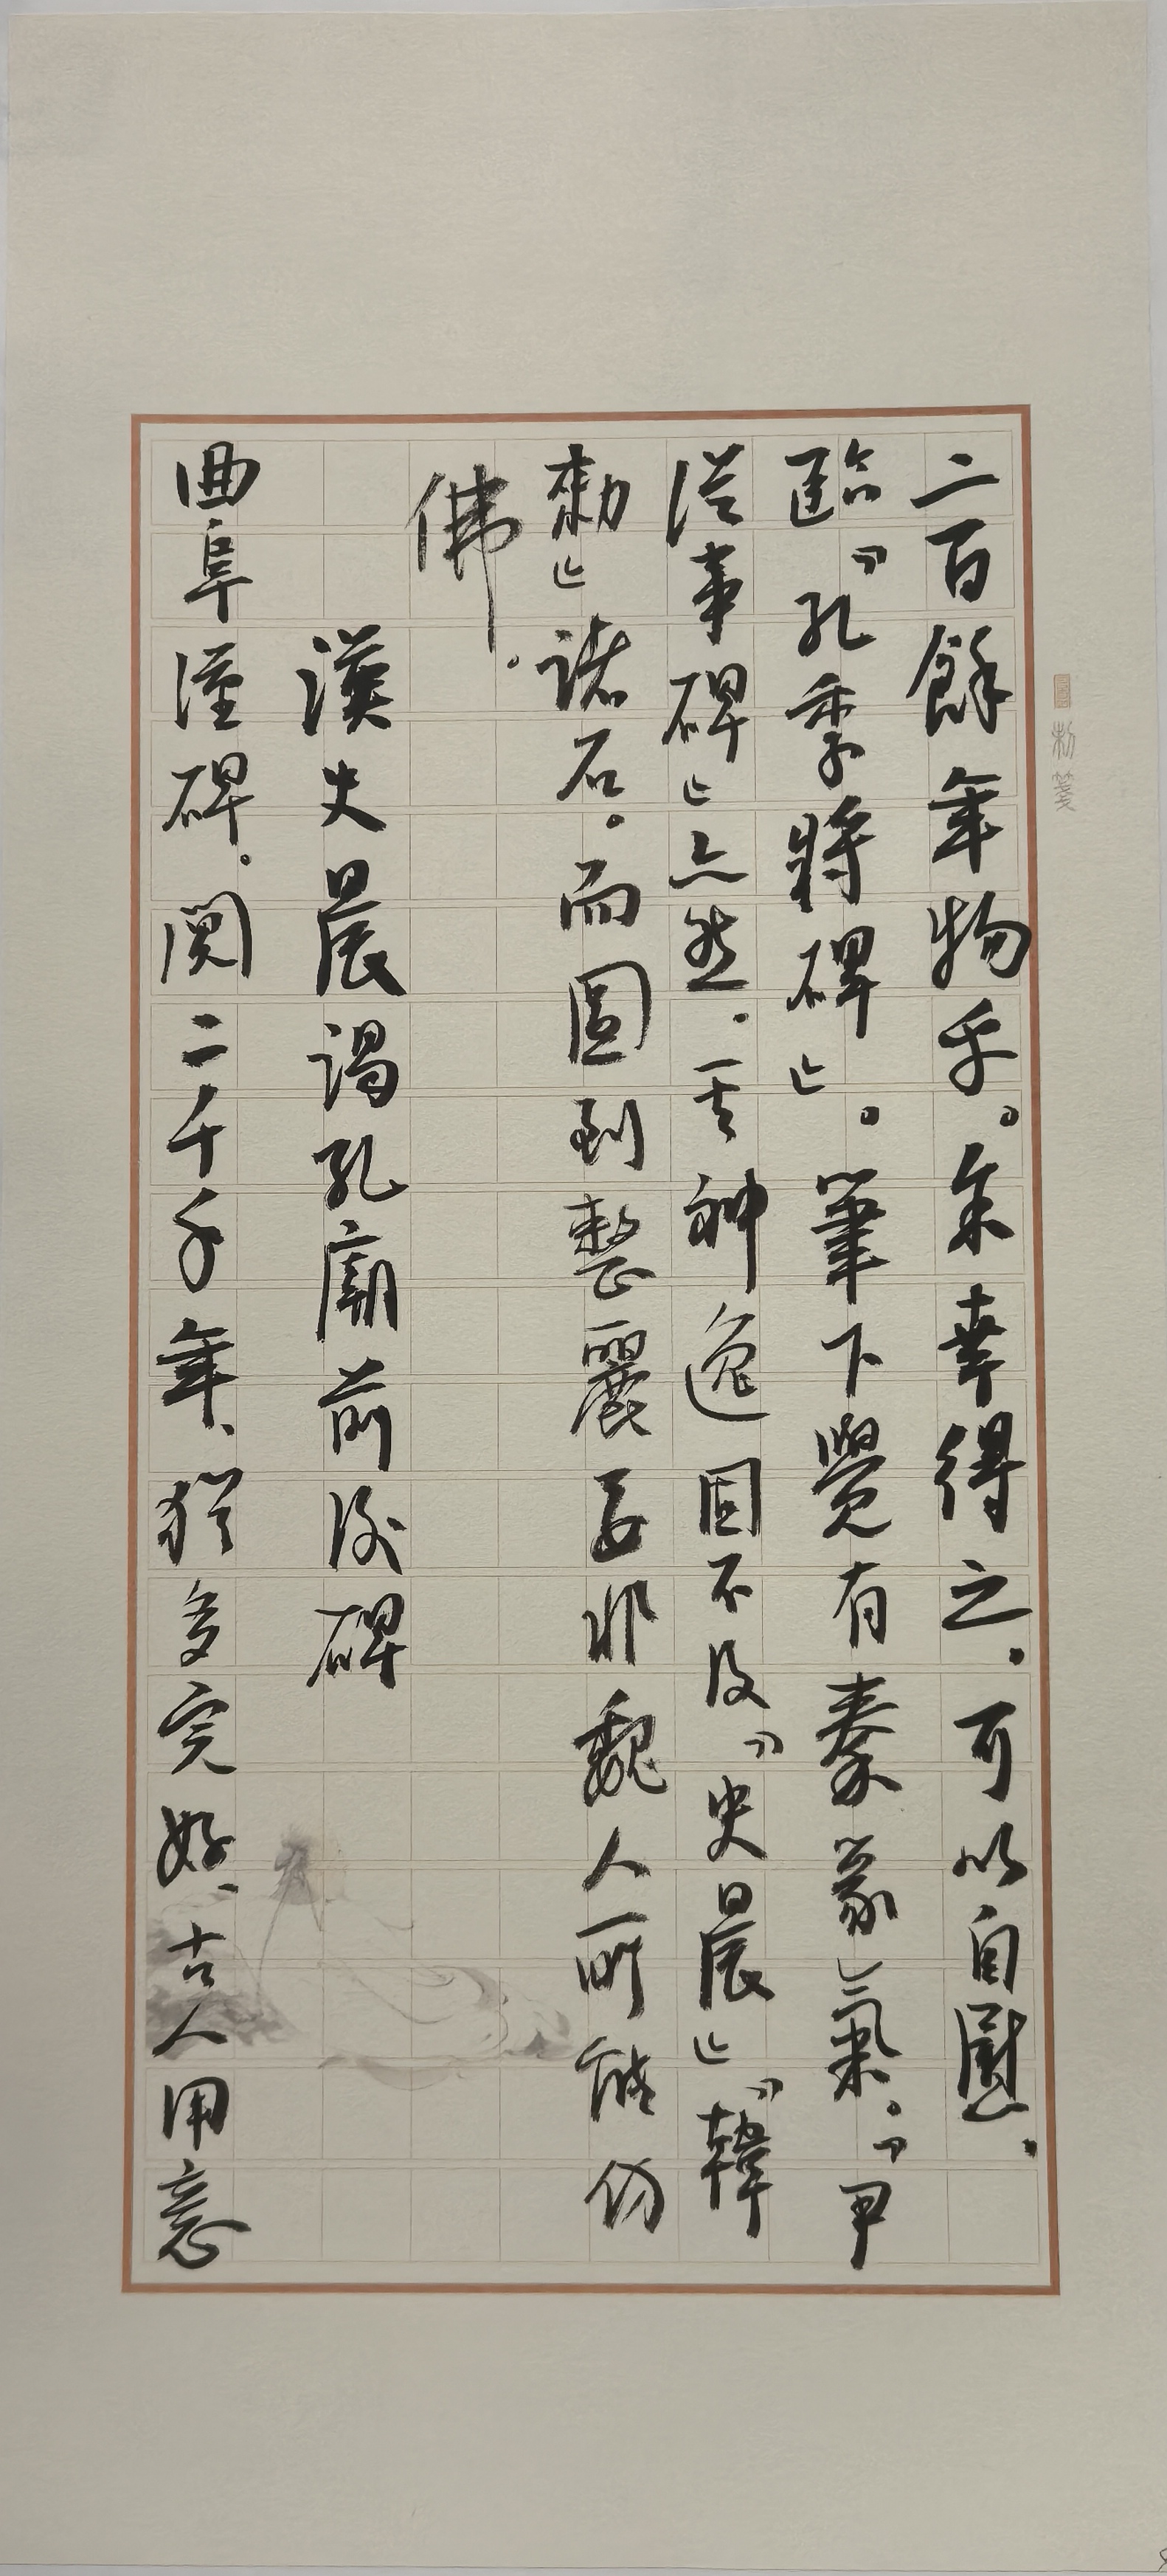 二百餘年物乎。余幸得之。可以自慰。
臨『孔季將碑』。筆下覺有秦篆氣。『尹
從事碑』亦然。其神逸固不及『史晨』『韓
勑』諸石。而圓到整麗要非魏人所能仿
佛。
漢史晨謁孔廟前後碑
曲阜漢碑。閱二千年、猶多完好、古人用意